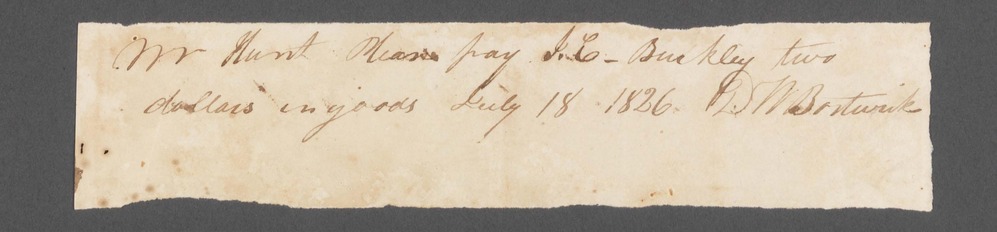 Mr Hunt Please pay J. C. Buckley two
dollars in goods July 18 1826 D W Bostwick